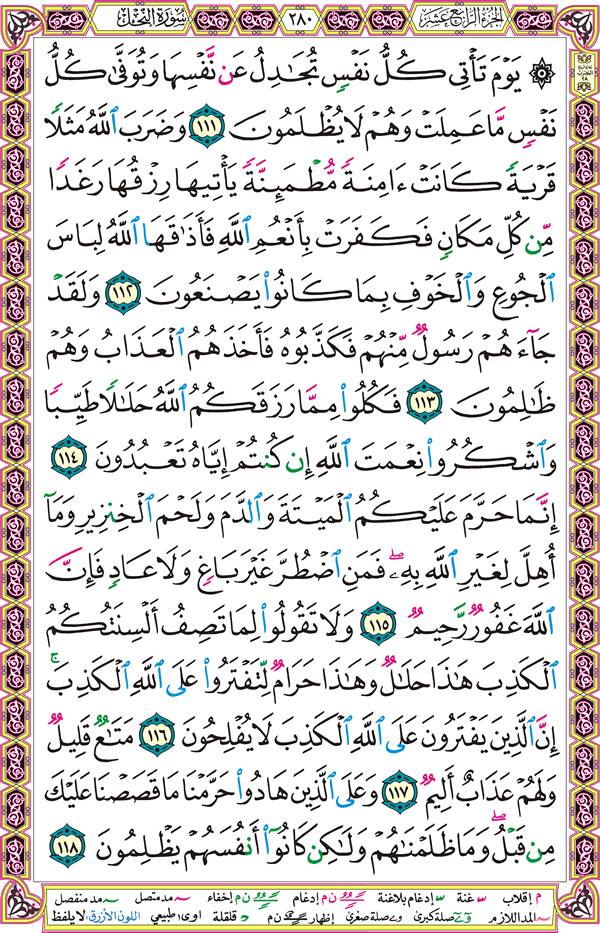 الجزء الرابع عشر
٢٨٠
سورة النحل
۞ يَوْمَ تَأْتِى كُلُّ نَفْسٍ تُجَـٰدِلُ عَن نَّفْسِهَا وَتُوَفَّىٰ كُلُّ
نَفْسٍ مَّا عَمِلَتْ وَهُمْ لَا يُظْلَمُونَ ١١١ وَضَرَبَ ٱللَّهُ مَثَلًا
قَرْيَةً كَانَتْ ءَامِنَةً مُّطْمَئِنَّةً يَأْتِيهَا رِزْقُهَا رَغَدًا
مِّن كُلِّ مَكَانٍ فَكَفَرَتْ بِأَنْعُمِ ٱللَّهِ فَأَذَٰقَهَا ٱللَّهُ لِبَاسَ
ٱلْجُوعِ وَٱلْخَوْفِ بِمَا كَانُوا۟ يَصْنَعُونَ ١١٢ وَلَقَدْ
جَآءَهُمْ رَسُولٌ مِّنْهُمْ فَكَذَّبُوهُ فَأَخَذَهُمُ ٱلْعَذَابُ وَهُمْ
ظَـٰلِمُونَ ١١٣ فَكُلُوا۟ مِمَّا رَزَقَكُمُ ٱللَّهُ حَلَـٰلًا طَيِّبًا
وَٱشْكُرُوا۟ نِعْمَتَ ٱللَّهِ إِن كُنتُمْ إِيَّاهُ تَعْبُدُونَ ١١٤
إِنَّمَا حَرَّمَ عَلَيْكُمُ ٱلْمَيْتَةَ وَٱلدَّمَ وَلَحْمَ ٱلْخِنزِيرِ وَمَآ
أُهِلَّ لِغَيْرِ ٱللَّهِ بِهِۦ ۖ فَمَنِ ٱضْطُرَّ غَيْرَ بَاغٍ وَلَا عَادٍ فَإِنَّ
ٱللَّهَ غَفُورٌ رَّحِيمٌ ١١٥ وَلَا تَقُولُوا۟ لِمَا تَصِفُ أَلْسِنَتُكُمُ
ٱلْكَذِبَ هَـٰذَا حَلَـٰلٌ وَهَـٰذَا حَرَامٌ لِّتَفْتَرُوا۟ عَلَى ٱللَّهِ ٱلْكَذِبَ ۚ
إِنَّ ٱلَّذِينَ يَفْتَرُونَ عَلَى ٱللَّهِ ٱلْكَذِبَ لَا يُفْلِحُونَ ١١٦ مَتَـٰعٌ قَلِيلٌ
وَلَهُمْ عَذَابٌ أَلِيمٌ ١١٧ وَعَلَى ٱلَّذِينَ هَادُوا۟ حَرَّمْنَا مَا قَصَصْنَا عَلَيْكَ
مِن قَبْلُ ۖ وَمَا ظَلَمْنَـٰهُمْ وَلَـٰكِن كَانُوٓا۟ أَنفُسَهُمْ يَظْلِمُونَ ١١٨
م إقلاب غنة إدغام بلاغنة ن م إدغام ن م إخفاء مد متصل مد منفصل
المد اللازم صلة كبرى صلة صغرى إظهار قلقلة اوى طبيعي اللون الأزرق: لا يلفظ